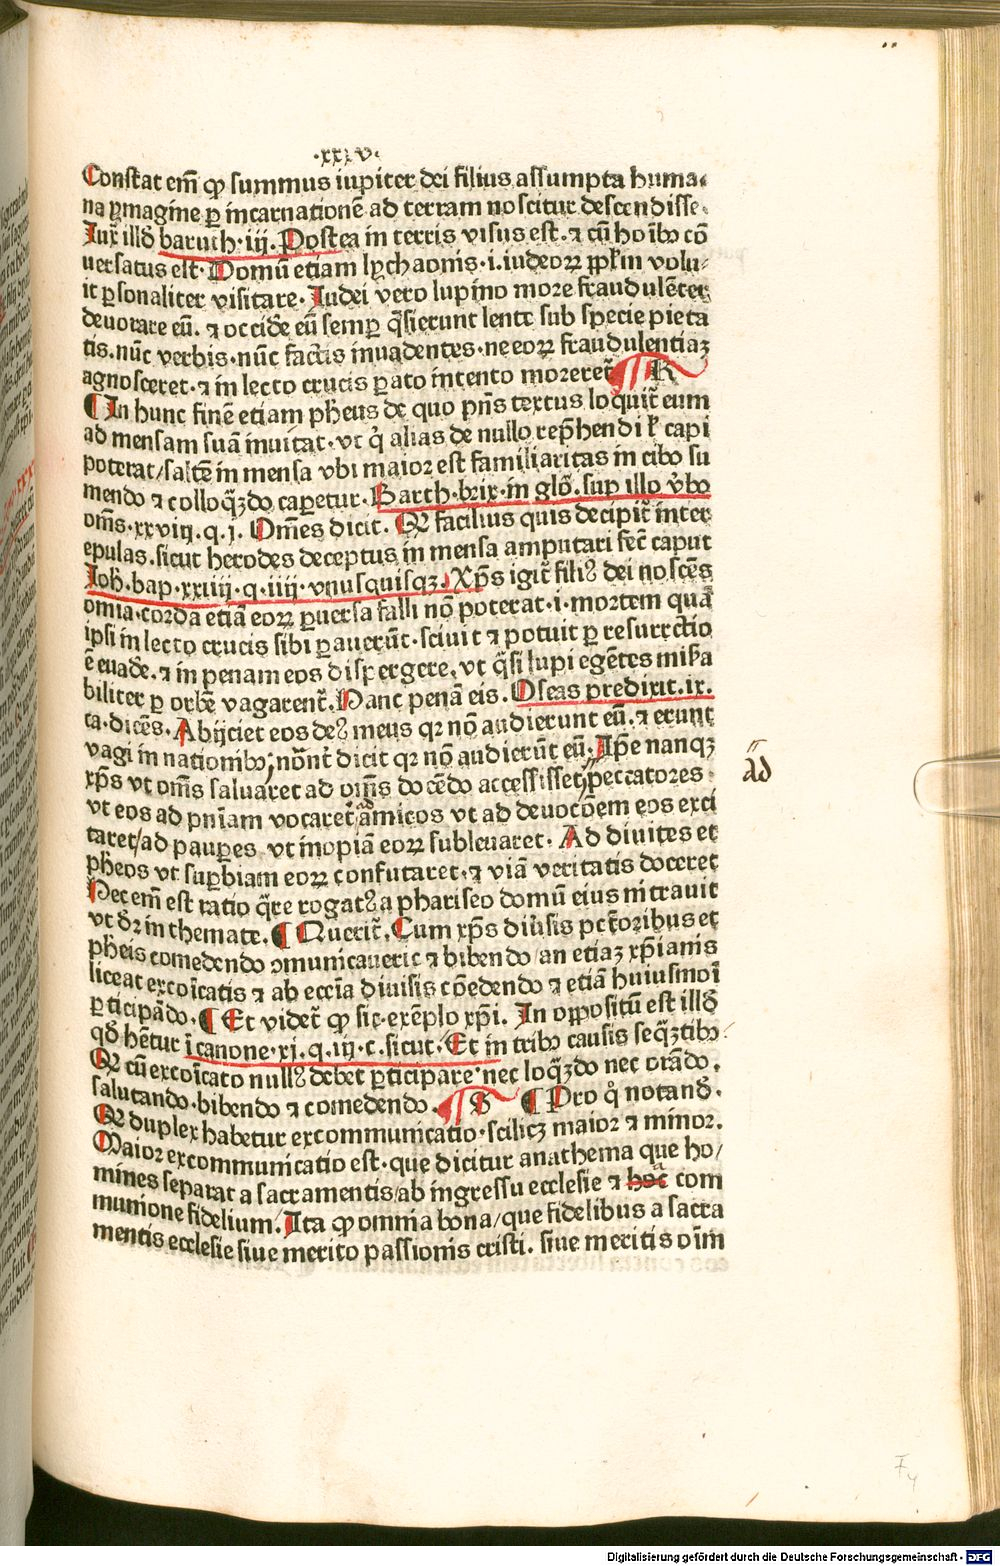 ·xxxv·
Constat em̄ ꝙ summus iupiter dei filius assumpta huma⸗
na ymagine ꝑ incarnationē ad terram noscitur descendisse.
Iux̄ illd̄ baruch·iij. Postea in terris visus est·⁊ cū hoībꝯ cō
uersatus est· Domū etiam lychaonis·i·iudeoꝝ ppl̄m volu⸗
it ꝑsonaliter visitare· Iudei vero lupino more fraudulēter
deuorare eū. ⁊ occidē eū semꝑ q̄sierunt lente sub specie pieta
tis·nūc verbis·nūc factis inuadentes·ne eoꝝ fraudulentiaꝫ
agnosceret·⁊ in lecto crucis ꝑato intento moreret᷑ ¶ R
¶ In hunc finē etiam ph̄eus de quo pn̄s textus loquit᷑ eum
ad mensam suā inuitat·vt q̇ alias de nullo rep̄hendi ł capi
poterat/saltē in mensa vbi maior est familiaritas in cibo su
mendo ⁊ colloq̄ꝫdo caperetur· Barth·brix·in glō. sup illo v̄bo
om̄s·xxviij.q.j. Om̄es dicit. Qꝛ facilius quis decipit᷑ inter
epulas·sicut herodes deceptus in mensa amputari fec̄ caput
Ioh̄·bap·xxiiij·q·iiij·vnusquisqꝫ. Xp̄s igit᷑ filiꝰ dei noscēs
omīa·corda etiā eoꝝ ꝑuersa falli nō poterat·i·mortem quā
ipsi in lecto crucis sibi ꝑauerūt·sciuit ⁊ potuit ꝑ resurrectio
ē euadē·⁊ in penam eos dispergere·vt q̄si lupi egētes misa
biliter ꝑ orbē vagarent᷑. Hanc penā eis. Oseas predixit·ix.
ca·dicēs·Abijciet eos deꝰ meus qꝛ nō audierunt eū·⁊ erunt
vagi in nationibꝯ; nōnt᷑ dicit qꝛ nō audierūt eū. Ip̄e nanqꝫ
xp̄s vt om̄s saluaret ad om̄s docēdo accessisset peccatores
ad
vt eos ad pn̄iam vocaret᷑ amicos vt ad deuocōem eos exci
taret/ad pauꝑes vt inopiā eoꝝ subleuaret· Ad diuites et
ph̄eos vt suꝑbiam eoꝝ confutaret·⁊ viā veritatis doceret
Hec em̄ est ratio q̄re rogatꝰ a phariseo domū eius intrauit
vt dꝛ in themate. ¶ Querit᷑. Cum xp̄s diūsis pct̄oribus et
ph̄eis comedendo ꝯmunicauerit ⁊ bibendo/an etiaꝫ xp̄ianis
liceat excoīcatis ⁊ ab eccīa diuisis cōedendo ⁊ etiā huiusmoī
ꝑticipādo·¶ Et videt᷑ ꝙ sic·exēplo xp̄i. In oppositū est illd̄
qd̄ hētur ī canone·xj.q.iij·c.sicut·Et in tribꝯ causis seq̄ꝫtibꝯ
Qꝛ cū excoīcato nullꝰ debet ꝑticipare·nec loq̄ꝫdo nec orādo.
salutando·bibendo ⁊ comedendo. ¶ S ¶ Pro q̇ notand̄.
Qꝛ duplex habetur excommunicatio·scilicꝫ maior ⁊ minor.
Maior excommunicatio est·que dicitur anathema que ho/
mines separat a sacramentis/ab ingressu ecclesie ⁊ hac com
munione fidelium. Ita ꝙ omnia bona/que fidelibus a sacra
mentis ecclesie siue merito passionis cristi. siue meritis oīm
Digitalisierung gefördert durch die Deutsche Forschungsgemeinschaft - DFG